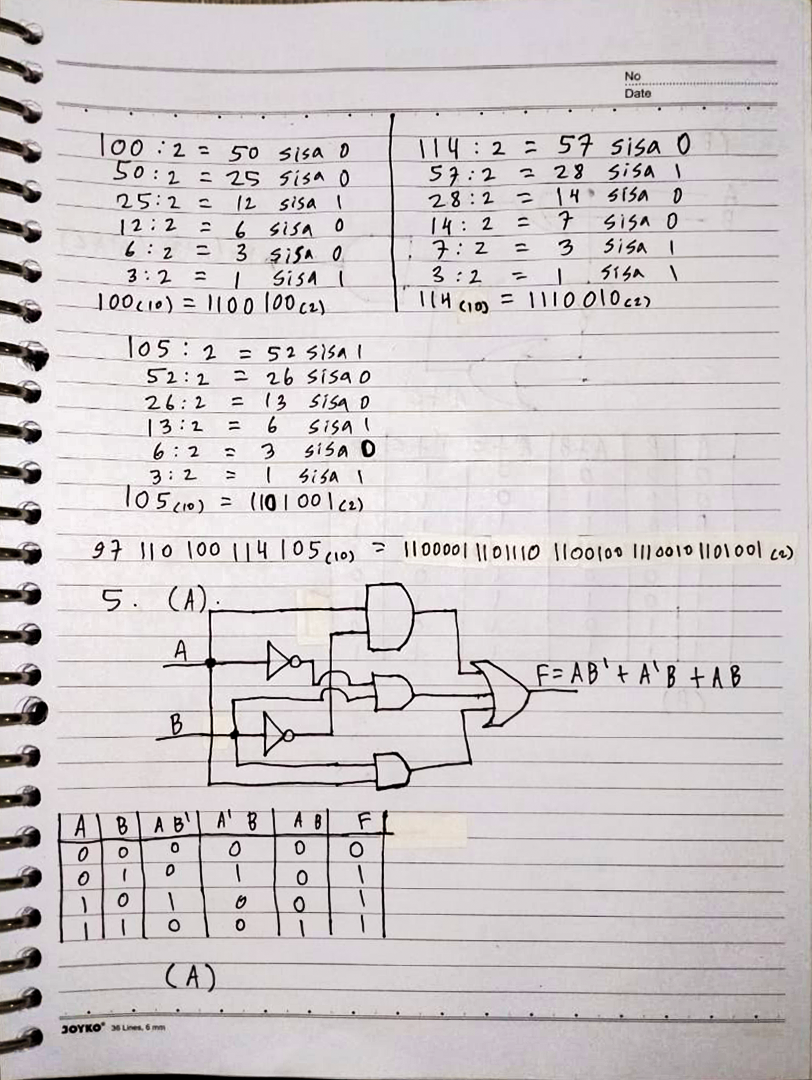 No
Date
100 : 2 = 50 sisa 0
50 : 2 = 25 sisa 0
25 : 2 = 12 sisa 1
12 : 2 = 6 sisa 0
6 : 2 = 3 sisa 0
3 : 2 = 1 sisa 1
100(10) = 1100100(2)
114 : 2 = 57 sisa 0
57 : 2 = 28 sisa 1
28 : 2 = 14 sisa 0
14 : 2 = 7 sisa 0
7 : 2 = 3 sisa 1
3 : 2 = 1 sisa 1
114(10) = 1110010(2)
105 : 2 = 52 sisa 1
52 : 2 = 26 sisa 0
26 : 2 = 13 sisa 0
13 : 2 = 6 sisa 1
6 : 2 = 3 sisa 0
3 : 2 = 1 sisa 1
105(10) = 1101001(2)
97 110 100 114 105(10) = 1100001 1101110 1100100 1110010 1101001(2)
5. (A).
A
F = AB' + A'B + AB
B
A B A B' A' B A B F
0 0 0 0 0 0
0 1 0 1 0 1
1 0 1 0 0 1
1 1 0 0 1 1
(A)
JOYKO® 36 Lines, 6 mm